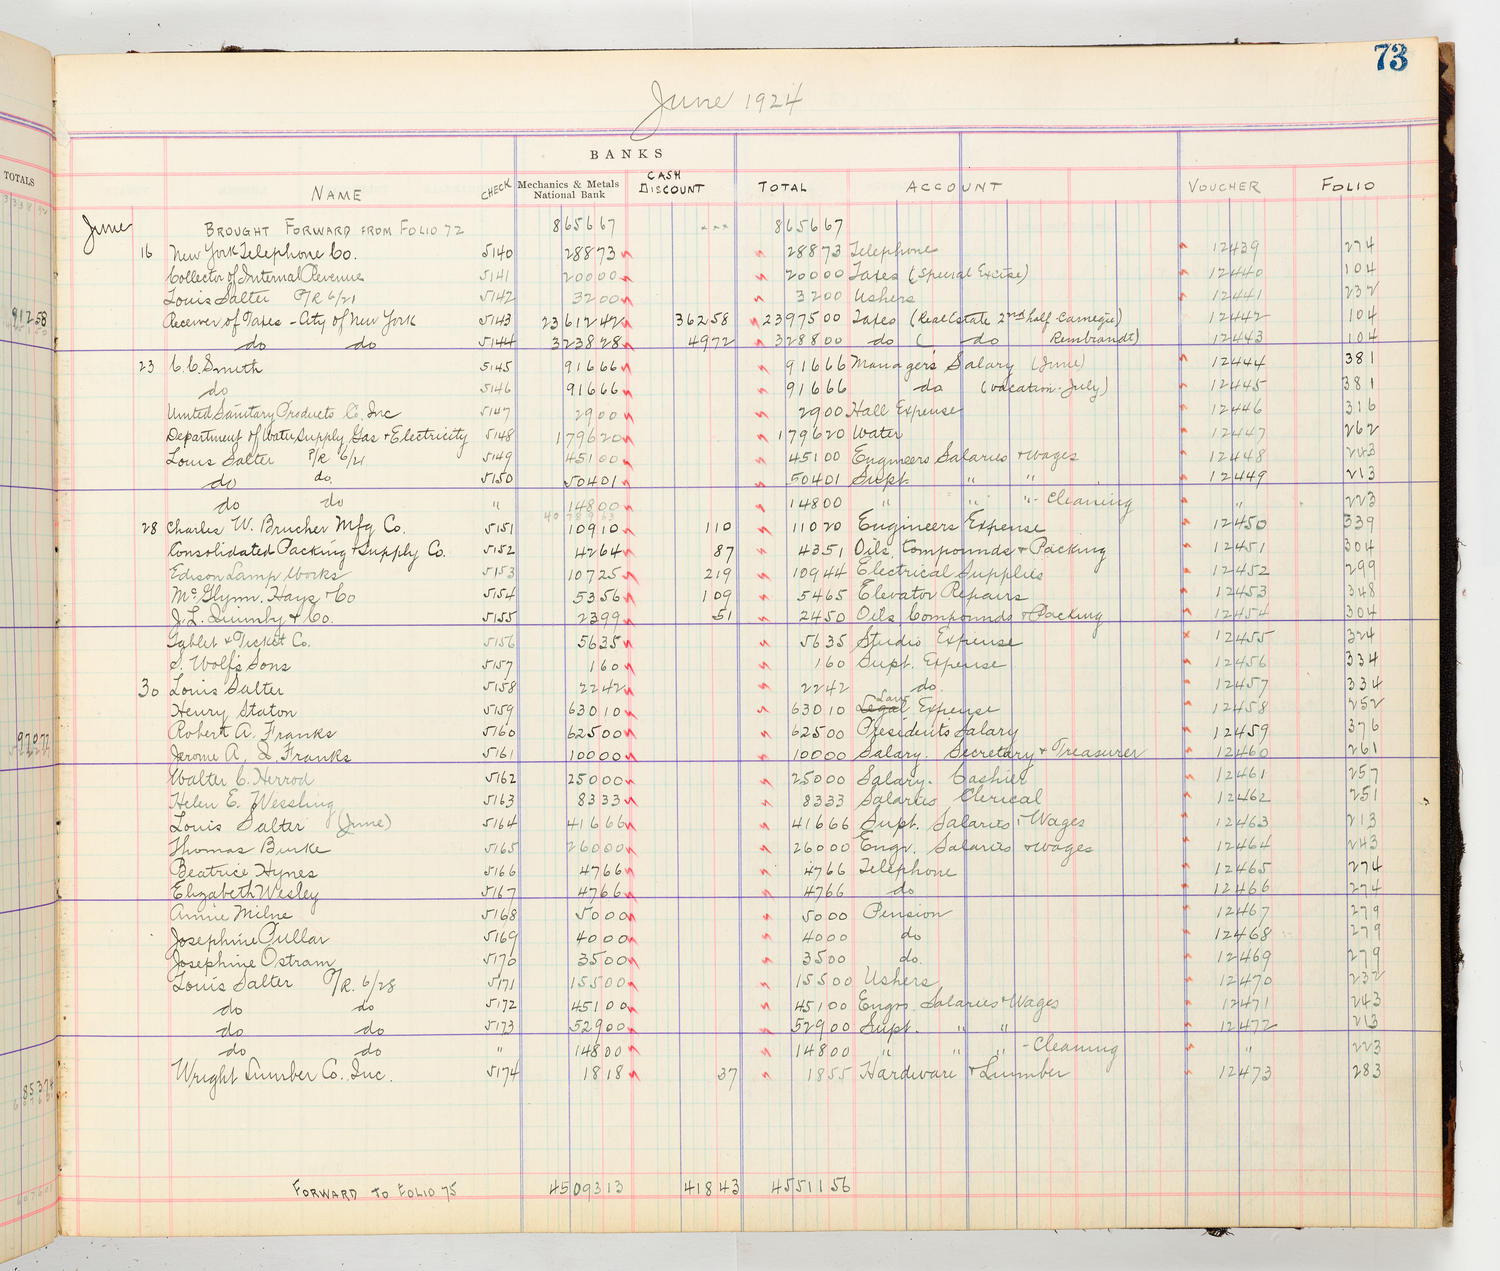 73
June 1924
TOTALS
BANKS
NAME CHECK Mechanics & Metals National Bank CASH DISCOUNT TOTAL ACCOUNT VOUCHER FOLIO
June BROUGHT FORWARD FROM FOLIO 72 865667 " " " 865667
16 New York Telephone Co. 5140 28873 28873 Telephone 12439 274
Collector of Internal Revenue 5141 20000 20000 Taxes (Special Excise) 12440 104
Louis Salter P/R 6/21 5142 3200 3200 Ushers 12441 232
91258 Receiver of Taxes - City of New York 5143 2361242 36258 2397500 Taxes (Real Estate 2nd half Carnegie) 12442 104
do do 5144 323828 4972 328800 do ( do Rembrandt) 12443 104
23 C. C. Smith 5145 91666 91666 Manager's Salary (June) 12444 381
do 5146 91666 91666 do (Vacation-July) 12445 381
United Sanitary Products Co, Inc 5147 2900 2900 Hall Expense 12446 316
Department of Water Supply, Gas + Electricity 5148 179620 179620 Water 12447 262
Louis Salter P/R 6/21 5149 45100 45100 Engineers Salaries + Wages 12448 243
do do. 5150 50401 50401 Supt. " " 12449 213
do do " 14800 14800 " " " - Cleaning " 223
28 Charles W. Brucher Mfg Co. 5151 10910 110 11020 Engineers Expense 12450 339
Consolidated Packing + Supply Co. 5152 4264 87 4351 Oils, Compounds + Packing 12451 304
Edison Lamp Works 5153 10725 219 10944 Electrical Supplies 12452 299
McGlynn, Hays + Co 5154 5356 109 5465 Elevator Repairs 12453 348
J. L. Quimby + Co. 5155 2399 51 2450 Oils, Compounds + Packing 12454 304
Tablet + Ticket Co. 5156 5635 5635 Studio Expense 12455 324
S. Wolf's Sons 5157 160 160 Supt. Expense 12456 334
30 Louis Salter 5158 2242 2242 do. 12457 334
Henry Staton 5159 63010 63010 Legal Law Expense 12458 252
97077 Robert A. Franks 5160 62500 62500 President's Salary 12459 376
Jerome A. Q. Franks 5161 10000 10000 Salary. Secretary + Treasurer 12460 261
Walter C. Herrod 5162 25000 25000 Salary. Cashier 12461 257
Helen E. Wessling 5163 8333 8333 Salaries Clerical 12462 251
Louis Salter (June) 5164 41666 41666 Supt. Salaries + Wages 12463 213
Thomas Burke 5165 26000 26000 Engr. Salaries + Wages 12464 243
Beatrice Hynes 5166 4766 4766 Telephone 12465 274
Elizabeth Wesley 5167 4766 4766 do 12466 274
Annie Milne 5168 5000 5000 Pension 12467 279
Josephine Cullar 5169 4000 4000 do 12468 279
Josephine Ostram 5170 3500 3500 do. 12469 279
Louis Salter P/R. 6/28 5171 15500 15500 Ushers 12470 232
do do 5172 45100 45100 Engrs. Salaries + Wages 12471 243
do do 5173 52900 52900 Supt. " " 12472 213
do do " 14800 14800 " " " - Cleaning " 223
85374 Wright Lumber Co. Inc. 5174 1818 37 1855 Hardware + Lumber 12473 283
FORWARD TO FOLIO 75 4509313 41843 4551156